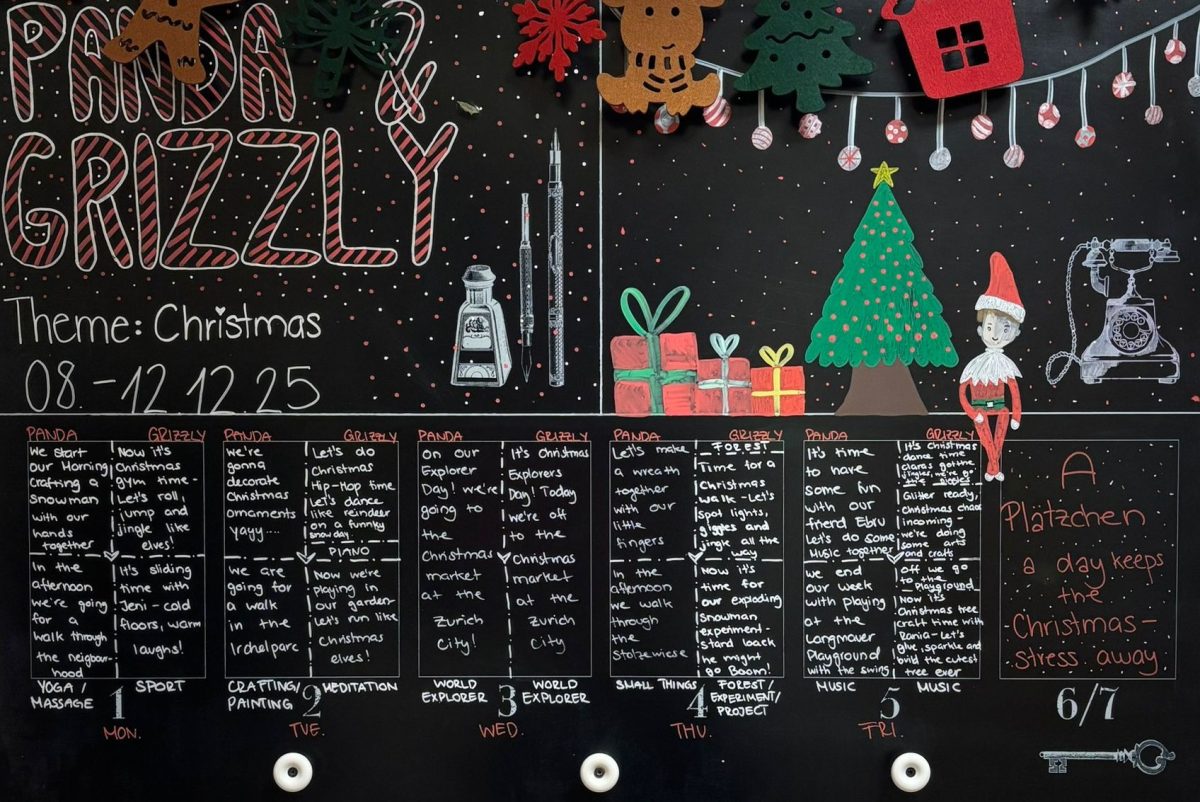 PANDA &
GRIZZLY
Theme: Christmas
08.-12.12.25
PANDA
We start
our Morning
crafting a
snowman
with our
hands
together
In the
afternoon
we're going
for a
walk through
the neigbour-
hood
YOGA /
MASSAGE
GRIZZLY
Now it's
Christmas
gym time-
Let's roll,
jump and
jingle like
elves!
It's sliding
time with
Jeni - cold
floors, warm
laughs!
SPORT
1
MON.
PANDA
we're
gonna
decorate
Christmas
ornaments
yayy....
we are
going for
a walk
in the
Irchelparc
CRAFTING/
PAINTING
GRIZZLY
Let's do
Christmas
Hip-Hop time
Let's dance
like reindeer
on a funnky
snow day
PIANO
Now we're
playing in
our garden-
Let's run like
Christmas
elves!
MEDITATION
2
TUE.
PANDA
on our
Explorer
Day! we're
going to
the
Christmas
market
at the
Zurich
City!
WORLD
EXPLORER
GRIZZLY
It's Christmas
Explorers
Day! Today
we're off
to the
Christmas
market
at the
Zurich
City
WORLD
EXPLORER
3
WED.
PANDA
Let's make
a wreath
together
with our
little
fingers
In the
afternoon
we walk
through
the
Stolzewiese
SMALL THINGS
GRIZZLY
FOREST
Time for a
Christmas
walk - Let's
spot lights,
giggles and
jingle all the
way
Now it's
time for
our exploding
Snowman
experiment-
stand back
he might
go Boom!
FOREST/
EXPERIMENT/
PROJECT
4
THU.
PANDA
It's time
to have
some fun
with our
friend Ebru
Let's do some
Music together
we end
our week
with playing
at the
Langmauer
Playground
with the swing
MUSIC
GRIZZLY
It's Christmas
dance time
Clara's got the
jingles, we're got
the giggles
Glitter ready,
Christmas chaos
incoming-
we're doing
some arts
and crafts
off we go
to the
Playground
Now it's
Christmas tree
craft time with
Rania - Let's
glue, sparkle and
build the cutest
tree ever
MUSIC
5
FRI.
A
Plätzchen
a day keeps
the
Christmas-
stress away
6/7